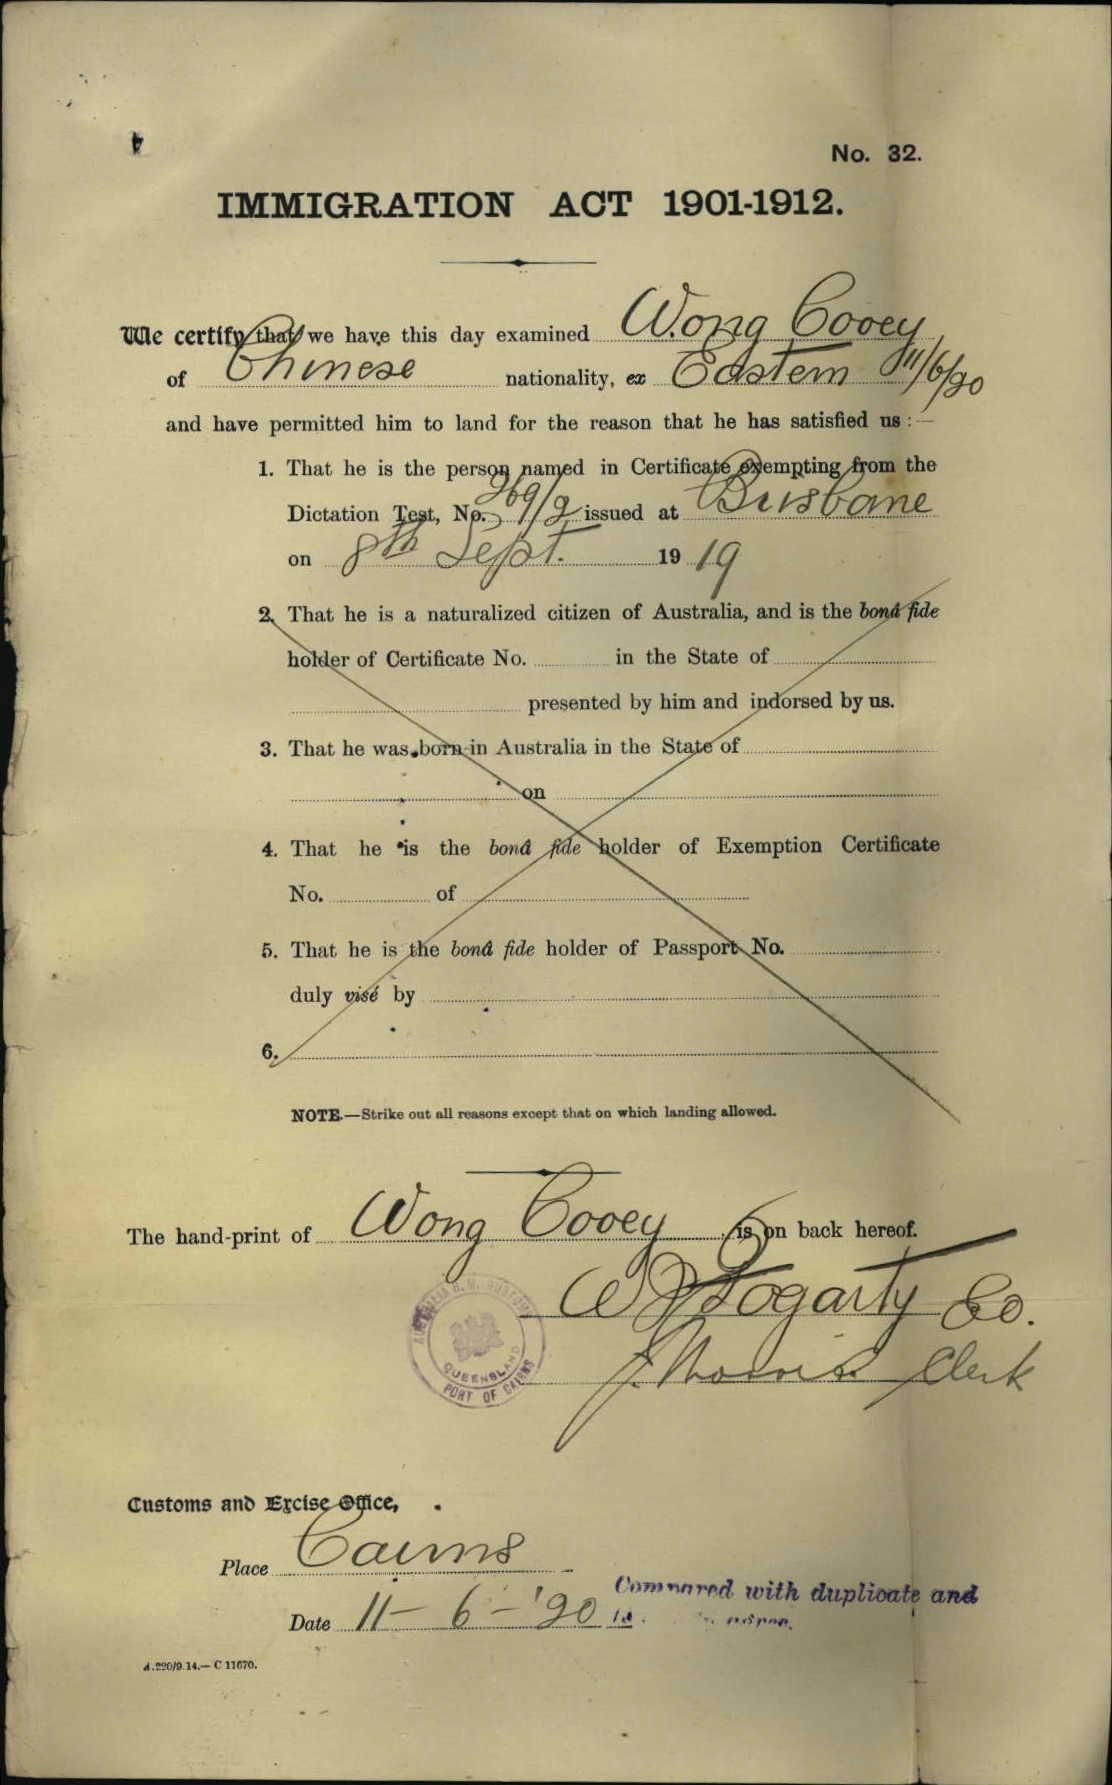 No. 32.
IMMIGRATION ACT 1901-1912.
We certify that we have this day examined Wong Cooey
of Chinese nationality, ex Eastern 11/6/20
and have permitted him to land for the reason that he has satisfied us :—
1. That he is the person named in Certificate exempting from the
Dictation Test, No. 269/2 issued at Brisbane
on 8th Sept. 1919
2. That he is a naturalized citizen of Australia, and is the bonâ fide
holder of Certificate No. in the State of
presented by him and indorsed by us.
3. That he was born in Australia in the State of
on
4. That he is the bonâ fide holder of Exemption Certificate
No. of
5. That he is the bonâ fide holder of Passport No.
duly visé by
6.
NOTE.—Strike out all reasons except that on which landing allowed.
The hand-print of Wong Cooey is on back hereof.
W J Fogarty Co.
J. Morris Clerk
AUSTRALIA H. M. CUSTOMS
QUEENSLAND
PORT OF CAIRNS
Customs and Excise Office,
Place Cairns
Date 11-6-'20
Compared with duplicate and
A.220/9.14.— C 11670.